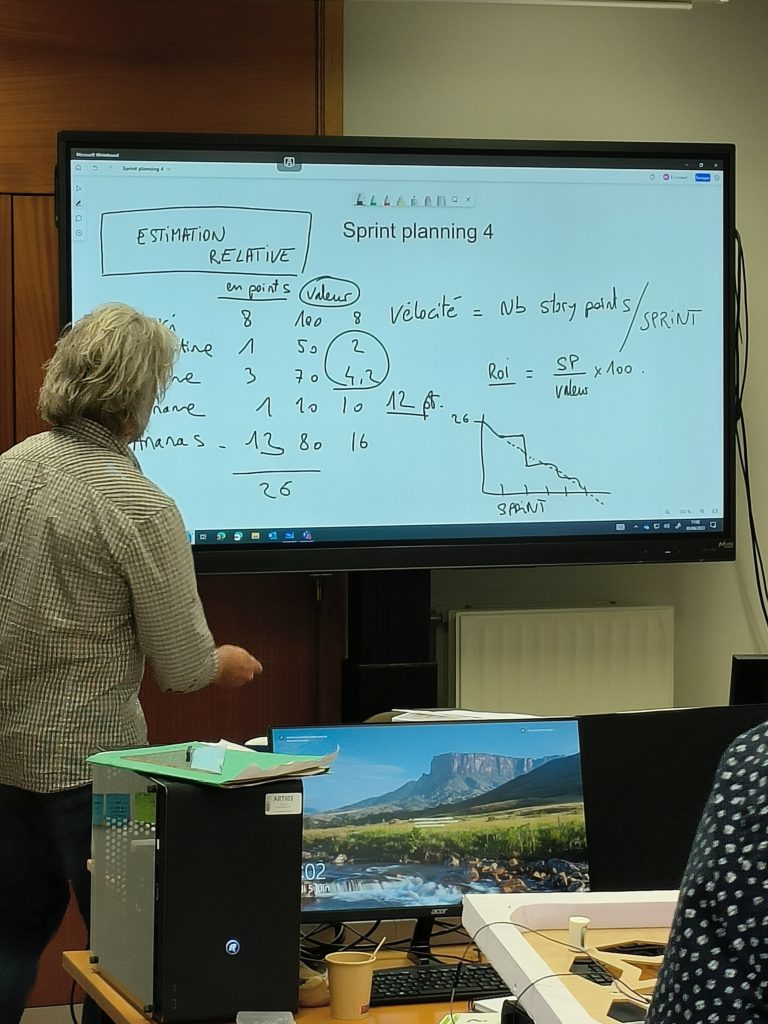 Microsoft Whiteboard
Sprint planning 4
ESTIMATION
RELATIVE
Sprint planning 4
en points valeur
8 100 8
1 50 2
3 70 4,2
1 10 10 12 pt.
Ananas - 13 80 16
26
Vélocité = Nb story points / SPRINT
Roi = SP / valeur x 100.
26
SPRINT
11:02
AETI03
:02
5 juin
acer